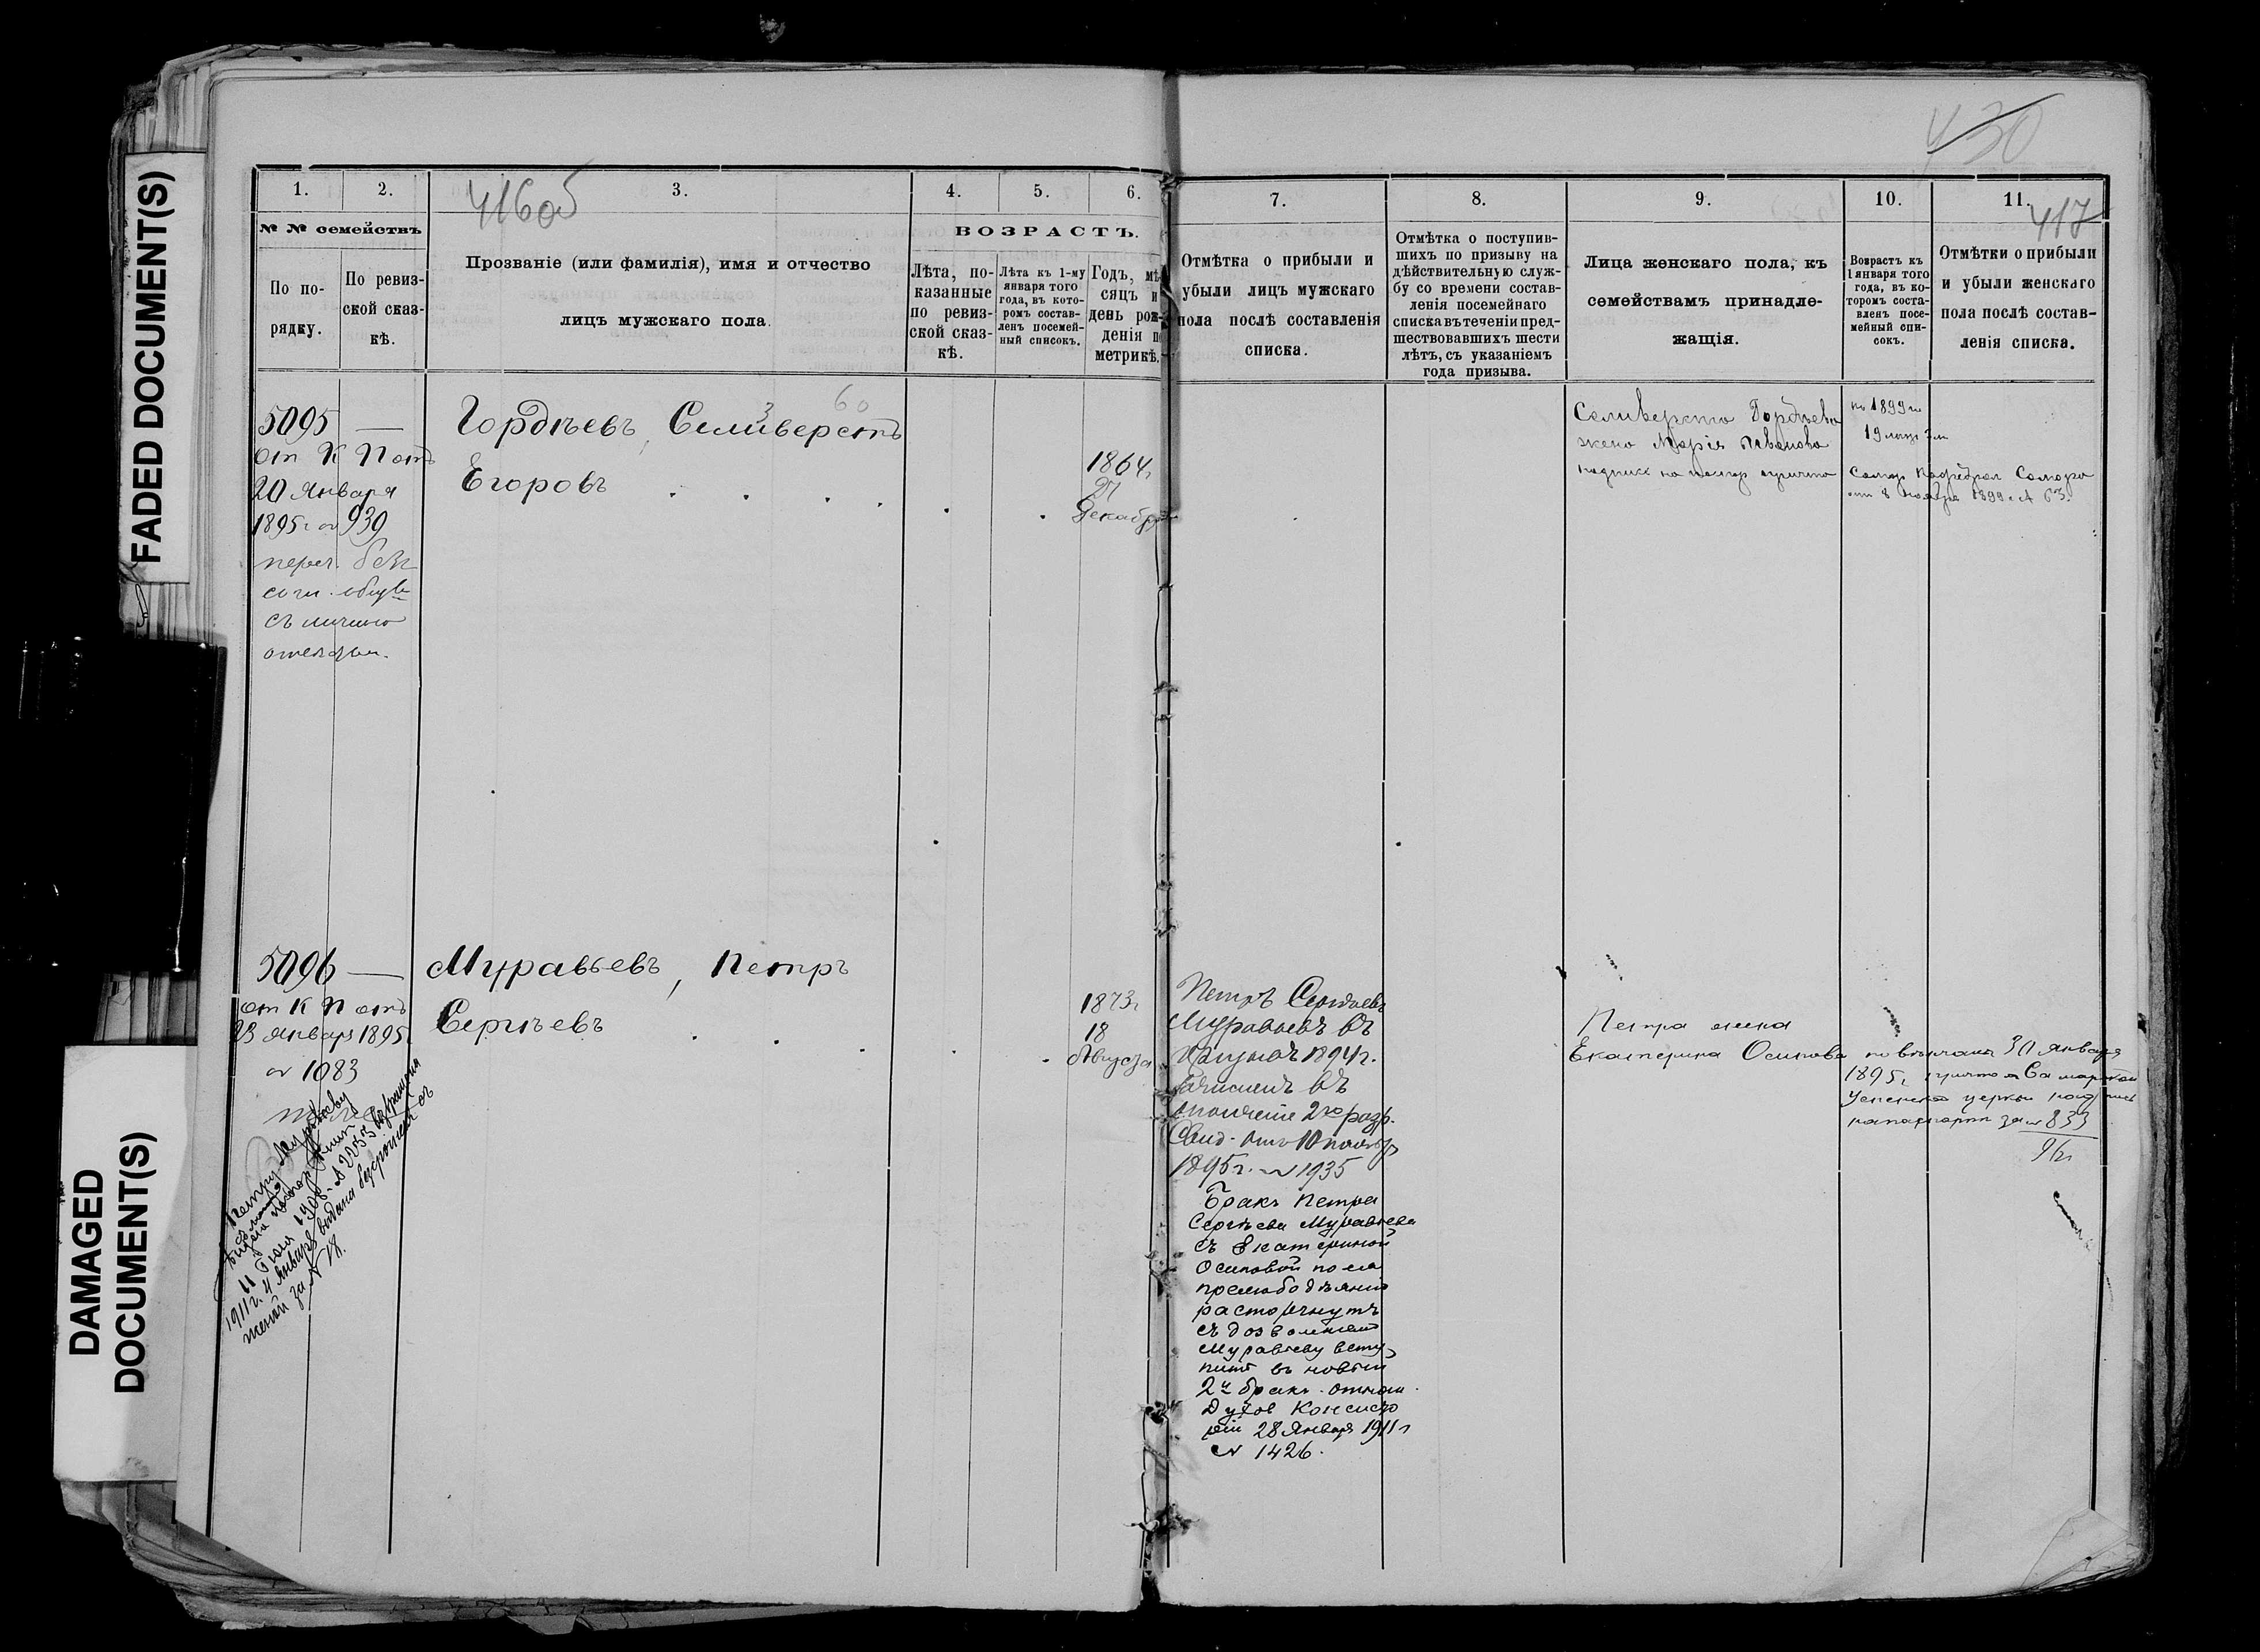 FADED DOCUMENT(S)
DAMAGED
DOCUMENT(S)
430
416об
417
1.
2.
3.
4.
5.
6.
№ № семействъ
ВОЗРАСТЪ.
По по-
рядку.
По ревиз-
ской сказ-
кѣ.
Прозваніе (или фамилія), имя и отчество
лицъ мужскаго пола.
Лѣта, по-
казанные
по ревиз-
ской сказ-
кѣ.
Лѣта къ 1-му
января того
года, въ кото-
ромъ состав-
ленъ посемей-
ный списокъ.
Годъ, мѣ-
сяцъ и
день рож-
денія по
метрикѣ.
7.
8.
9.
10.
11.
Отмѣтка о прибыли и
убыли лицъ мужскаго
пола послѣ составленія
списка.
Отмѣтка о поступив-
шихъ по призыву на
дѣйствительную служ-
бу со времени состав-
ленія посемейнаго
списка въ теченіи пред-
шествовавшихъ шести
лѣтъ, съ указаніемъ
года призыва.
Лица женскаго пола, къ
семействамъ принадле-
жащія.
Возрастъ къ
1 января того
года, въ ко-
торомъ соста-
вленъ посе-
мейный спи-
сокъ.
Отмѣтки о прибыли
и убыли женскаго
пола послѣ состав-
ленія списка.
5095 —
от К Пот
20 Января
1895 г № 939
переч. без
согл. общ
съ
3
60
Гордѣевъ, Селиверстъ
Егоровъ
1864 г
Декабря
Селиверста Гордѣева
жена Марія Иванова
1899
19
от 8 1899 г № 63.
5096 —
от К Пот
23 Января 1895 г
№ 1083
Петру Муравьеву
11 1908
1911 г. 4 Января выдана безсрочная
за № 18.
Муравьевъ, Петръ
Сергѣевъ
1873 г
18
Августа
Петръ Сергѣевъ
Муравьевъ въ
1894 г.
зачисленъ въ
ополченіе 2го разр.
Свид. отъ 10 ноября
1895 г. № 1935
Бракъ Петра
Сергѣева Муравьева
съ Екатериной
Осиповой по ея
прелюбодѣянію
расторгнутъ
съ дозволеніемъ
Муравьеву всту
пить въ новый
2й бракъ. отнош.
Духов Консисто
ріи 28 Января 1911 г
№ 1426.
Петра жена
Екатерина Осипова
повѣнчаны 30 Января
1895 г. Самарской
Успенской церкви
за № 833